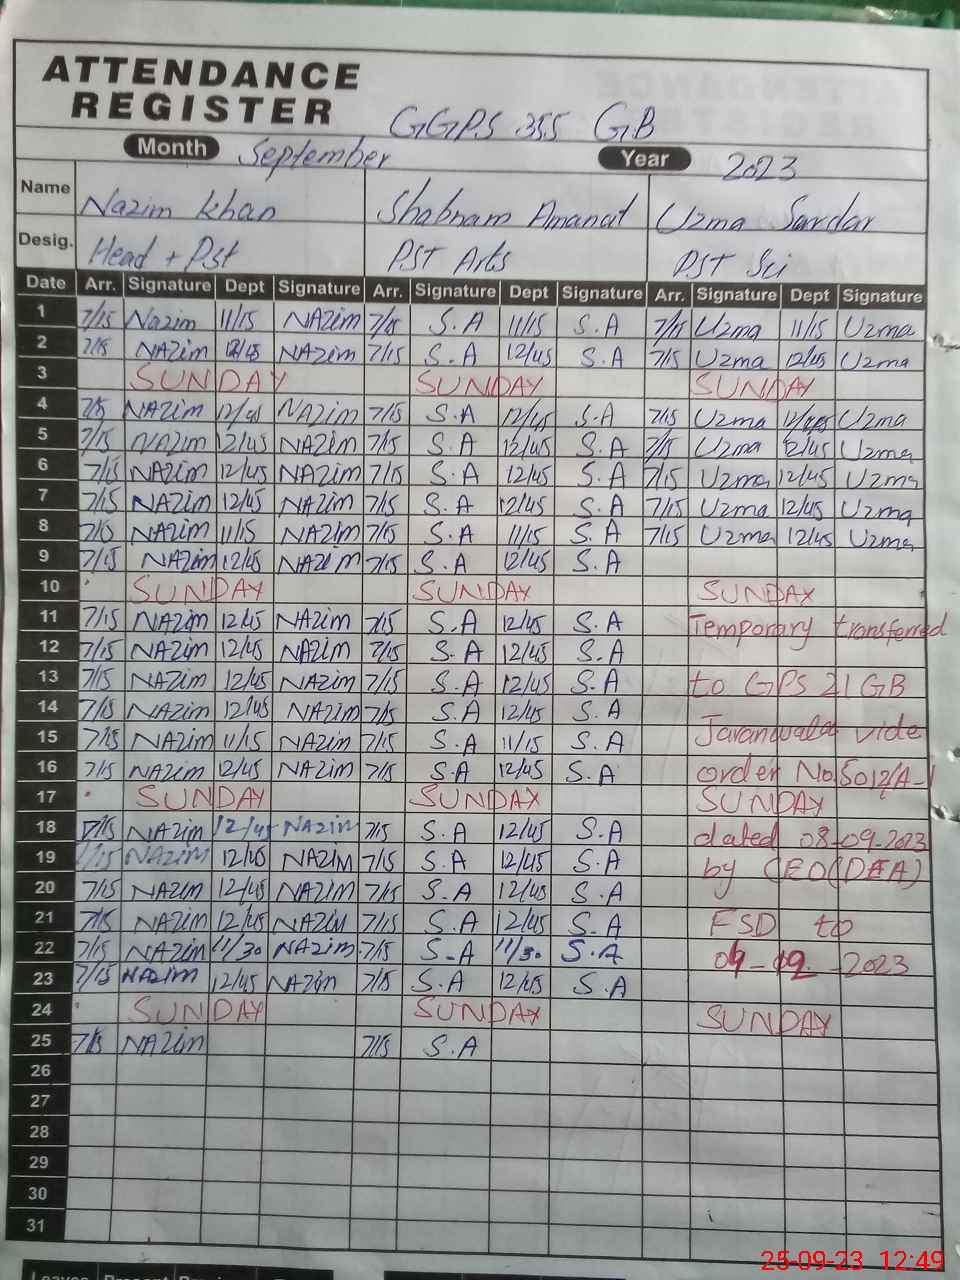 ATTENDANCE
REGISTER
GGPS 355 GB
Month September Year 2023
Name Nazim Khan Shabnam Amanat Uzma Sardar
Desig. Head + Pst PST Arts PST Sci
Date Arr. Signature Dept Signature Arr. Signature Dept Signature Arr. Signature Dept Signature
1 7/15 Nazim 11/15 NAZim 7/15 S.A 11/15 S.A 7/15 Uzma 11/15 Uzma
2 7/15 NAZim 12/45 NAZim 7/15 S.A 12/45 S.A 7/15 Uzma 12/45 Uzma
3 SUNDAY SUNDAY SUNDAY
4 7/15 NAZim 12/45 NAZim 7/15 S.A 12/45 S.A 7/15 Uzma 12/45 Uzma
5 7/15 NAZim 12/45 NAZim 7/15 S.A 12/45 S.A 7/15 Uzma 12/45 Uzma
6 7/15 NAZim 12/45 NAZim 7/15 S.A 12/45 S.A 7/15 Uzma 12/45 Uzma
7 7/15 NAZim 12/45 NAZim 7/15 S.A 12/45 S.A 7/15 Uzma 12/45 Uzma
8 7/15 NAZim 11/15 NAZim 7/15 S.A 11/15 S.A 7/15 Uzma 12/45 Uzma
9 7/15 NAZim 12/45 NAZim 7/15 S.A 12/45 S.A
10 SUNDAY SUNDAY SUNDAY
11 7/15 NAZim 12/45 NAZim 7/15 S.A 12/45 S.A Temporary transferred
12 7/15 NAZim 12/45 NAZim 7/15 S.A 12/45 S.A
13 7/15 NAZim 12/45 NAZim 7/15 S.A 12/45 S.A to GPS 21 GB
14 7/15 NAZim 12/45 NAZim 7/15 S.A 12/45 S.A
15 7/15 NAZim 11/15 NAZim 7/15 S.A 11/15 S.A Jaranwala vide
16 7/15 NAZim 12/45 NAZim 7/15 S.A 12/45 S.A order No 5012/A-1
17 SUNDAY SUNDAY SUNDAY
18 7/15 NAZim 12/45 NAZim 7/15 S.A 12/45 S.A dated 08-09-2023
19 7/15 NAZim 12/45 NAZIM 7/15 S.A 12/45 S.A by CEO(DEA)
20 7/15 NAZim 12/45 NAZim 7/15 S.A 12/45 S.A
21 7/15 NAZim 12/45 NAZim 7/15 S.A 12/45 S.A FSD to
22 7/15 NAZim 11/30 NAZim 7/15 S.A 11/30 S.A 2023
23 7/15 NAZim 12/45 NAZim 7/15 S.A 12/45 S.A
24 SUNDAY SUNDAY SUNDAY
25 7/15 NAZim 7/15 S.A
26
27
28
29
30
31
25-09-23 12:49